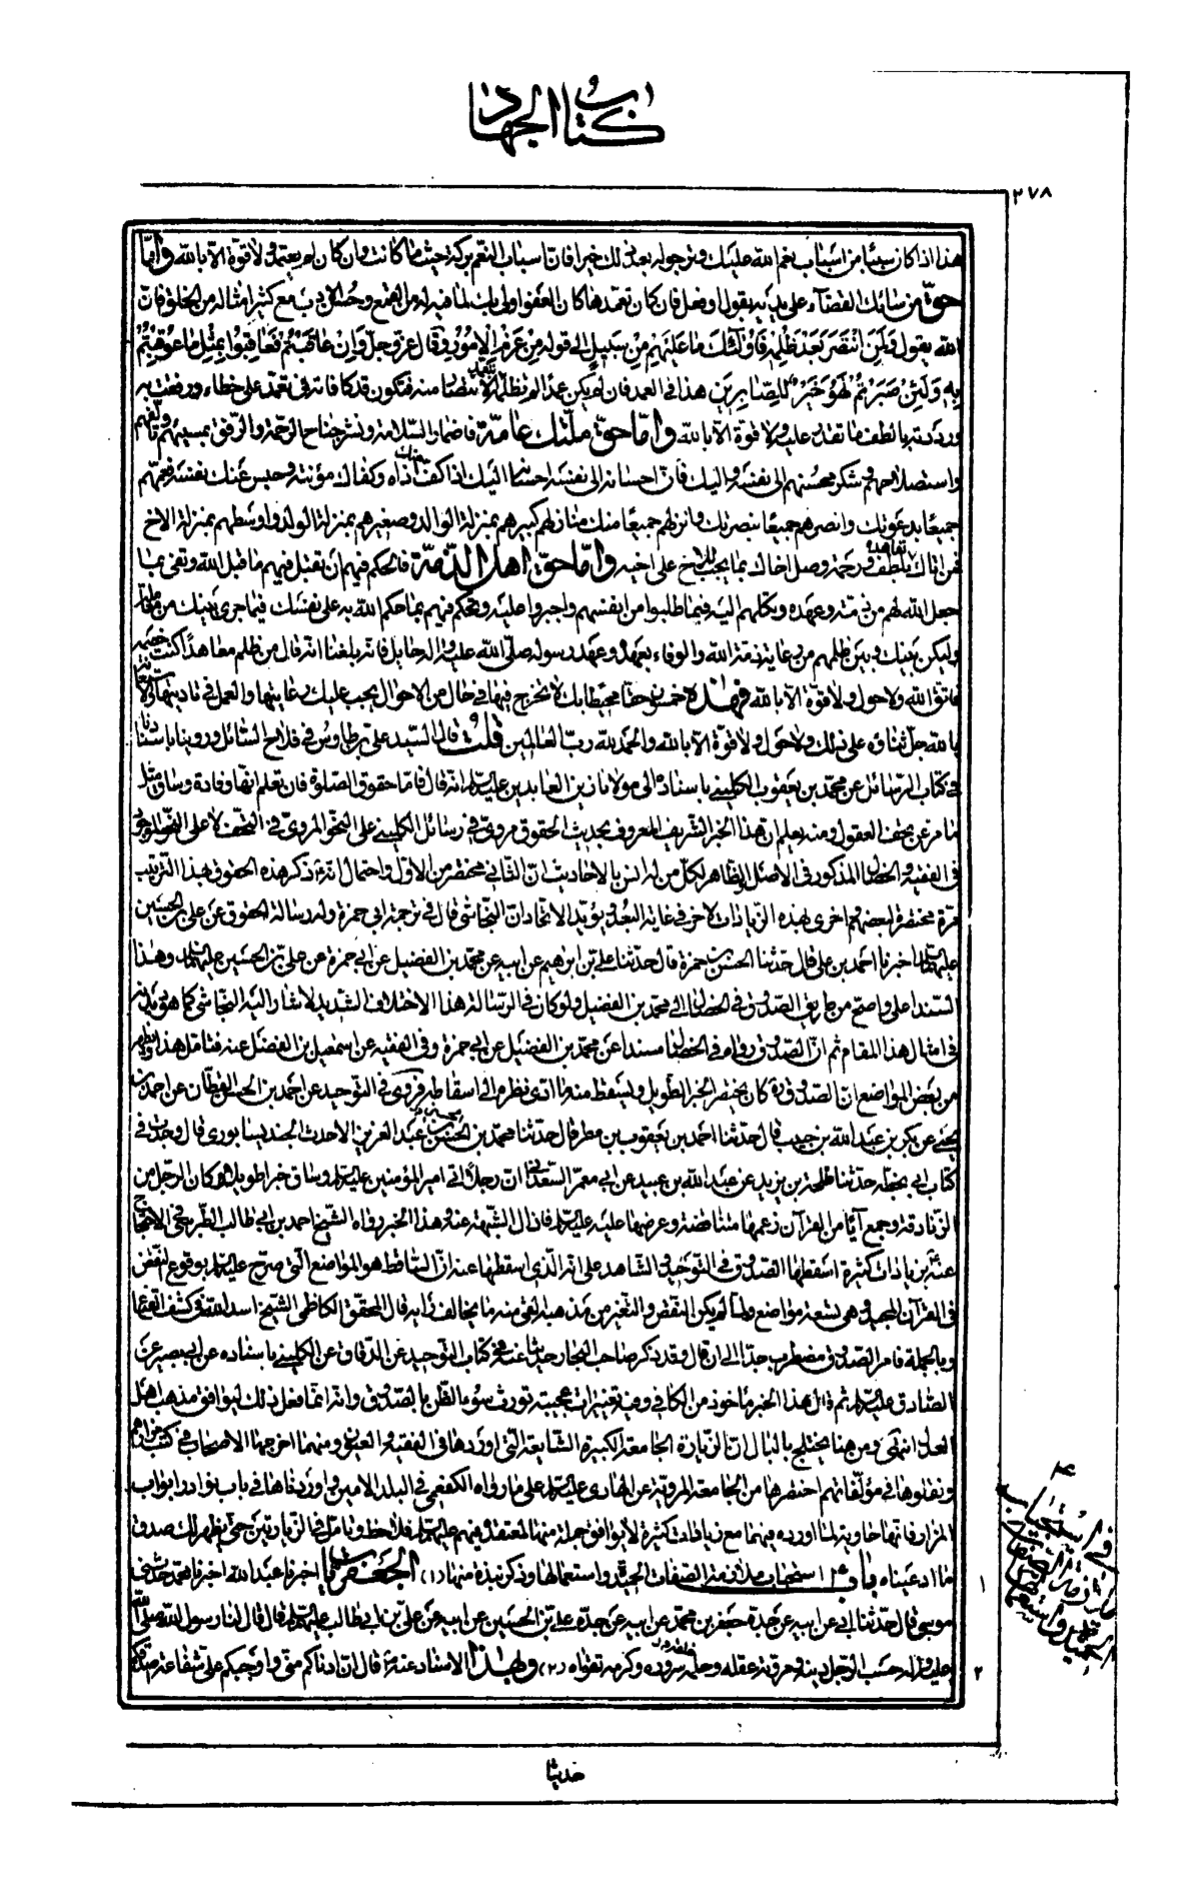 كتاب الجهاد
٢٧٨
هذا اذا كان سببا من اسباب نعم الله عليك وترجو له بعد ذلك خيرا فان اسباب النعم بركة حيث ما كانت وان كان لم يعتمد ولا قوة الا بالله واما
حق من سائك القضاء على يديه بقول او فعل فان كان تعمدها كان العفو اولى بك لما فيه له من القمع وحسن الادب مع كثير امثاله من الخلق فان
الله يقول ولمن انتصر بعد ظلمه فاولئك ما عليهم من سبيل الى قوله من عزم الامور وقال عز وجل وان عاقبتم فعاقبوا بمثل ما عوقبتم
به ولئن صبرتم لهو خير للصابرين هذا في العمد فان لم يكن عمدا لم تظلمه بتعمد الانتصار منه فتكون قد كافاته في تعمد على خطاء ورفقت به
ورددته بالطف ما تقدر عليه ولا قوة الا بالله واما حق ملتك عامة فاضمار السلامة ونشر جناح الرحمة والرفق بمسيئهم وتالفهم
واستصلاحهم وشكر محسنهم الى نفسه واليك فان احسانه الى نفسه احسانه اليك اذا كف عنك اذاه وكفاك مؤنته وحبس عنك نفسه فعمهم
جميعا بدعوتك وانصرهم جميعا بنصرتك وانزلهم جميعا منك منازلهم كبيرهم بمنزلة الوالد وصغيرهم بمنزلة الولد واوسطهم بمنزلة الاخ
فمن اتاك تعاهده بلطف ورحمة وصل اخاك بما يجب للاخ على اخيه واما حق اهل الذمة فالحكم فيهم ان تقبل فيهم ما قبل الله وتفى بما
جعل الله لهم من ذمته وعهده وتكلهم اليه فيما طلبوا من انفسهم واجبروا عليه وتحكم فيهم بما حكم الله به على نفسك فيما جرى بينك من معاملة
وليكن بينك وبين ظلمهم من رعاية ذمة الله والوفاء بعهده وعهد رسوله صلى الله عليه واله حايل فانه بلغنا انه قال من ظلم معاهدا كنت خصمه
فاتق الله ولا حول ولا قوة الا بالله فهذه خمسون حقا محيطا بك لا تخرج منها في حال من الاحوال يجب عليك رعايتها والعمل في تاديتها والاستعانة
بالله جل ثناؤه على ذلك ولا حول ولا قوة الا بالله والحمد لله رب العالمين قلت قال السيد على بن طاوس في فلاح السائل وروينا باسنادنا
في كتاب الرسائل عن محمد بن يعقوب الكليني باسناده الى مولانا زين العابدين عليه السلام انه قال فاما حقوق الصلوة فان تعلم انها وفادة وساق مثل
ما مر عن تحف العقول ومنه يعلم ان هذا الخبر الشريف المعروف بحديث الحقوق مروى في رسائل الكليني على النحو المروى في التحف لا على النحو الموجود
في الفقيه والخصال المذكور في الاصل والظاهر لكل من له انس بالاحاديث ان الثاني مختصر من الاول واحتمال انه ع ذكر هذه الحقوق بهذا الترتيب
مرة مختصرة لبعضهم واخرى بهذه الزيادات لاخر في غاية البعد ويؤيد الاتحاد ان النجاشي قال في ترجمة ابي حمزة وله رسالة الحقوق عن على بن الحسين
عليهما السلام اخبرنا احمد بن على قال حدثنا الحسن بن حمزة قال حدثنا على بن ابرهيم عن ابيه عن محمد بن الفضيل عن ابي حمزة عن على بن الحسين عليهما السلام وهذا
السند اعلى واصح من طريق الصدوق في الخصال الى محمد بن الفضيل ولو كان في الرسالة هذا الاختلاف الشديد لاشار اليه النجاشي كما هو ديدنه
في امثال هذا المقام ثم ان الصدوق ره رواه في الخصال مسندا عن محمد بن الفضيل عن ابي حمزة وفي الفقيه عن اسمعيل بن الفضل عنه فتامل هذا ويظهر
من بعض المواضع ان الصدوق ره كان يختصر الخبر الطويل ويسقط منه ما ادى نظره الى اسقاطه فروى في التوحيد عن احمد بن الحسن القطان عن احمد بن
يحيى عن بكر بن عبد الله بن حبيب قال حدثنا احمد بن يعقوب بن مطر قال حدثنا محمد بن الحسن بن عبد العزيز الاحدث الجنديسابوري قال وجدت في
كتاب ابي بخطه حدثنا طلحة بن يزيد عن عبد الله بن عبيد عن ابي معمر السعداني ان رجلا اتى امير المؤمنين عليه السلام وساق خبرا طويلا وكان الرجل من
الزنادقة وجمع آيا من القرآن زعمها متناقضة وعرضها عليه عليه السلام فازال الشبهة عنه وهذا الخبر رواه الشيخ احمد بن ابي طالب الطبرسي في الاحتجاج
عنه بزيادات كثيرة اسقطها الصدوق في التوحيد والشاهد على انه الذي اسقطها عنه ان الساقط هو المواضع التي صرح عليه السلام بوقوع النقص
في القرآن المجيد وهي تسعة مواضع ولما لم يكن النقص والتغيير من مذهبه القى منه ما يخالف رايه قال المحقق الكاظمي الشيخ اسد الله في كشف القناع
وبالجملة فامر الصدوق مضطرب جدا الى ان قال وقد ذكر صاحب البحار حديثا عنه في كتاب التوحيد عن الدقاق عن الكليني باسناده عن ابي بصير عن
الصادق عليه السلام ثم قال هذا الخبر ماخوذ من الكافي وفيه تغييرات عجيبة تورث سوء الظن بالصدوق وانه انما فعل ذلك ليوافق مذهب اهل
العدل انتهى ومن هنا يختلج بالبال ان الزيارة الجامعة الكبيرة الشايعة التي اوردها في الفقيه والعيون ومنهما اخرجها الاصحاب في كتب مزارهم
ونقلوها في مؤلفاتهم اختصرها من الجامعة المروية عن الهادي عليه السلام على ما رواه الكفعمي في البلد الامين واوردناها في باب نوادر ابواب
المزار فانها حاوية لما اورده فيهما مع زيادات كثيرة لا يوافق جملة منها المعتقده فيهم عليهم السلام فلاحظ وتامل في الزيارتين حتى يظهر لك صدق
ما ادعيناه باب استحباب ملازمة الصفات الحميدة واستعمالها وذكر نبذة منها (١) الجعفريات اخبرنا عبد الله اخبرنا محمد حدثني
موسى قال حدثنا ابي عن ابيه عن جده جعفر بن محمد عن ابيه عن جده على بن الحسين عن ابيه عن على بن ابي طالب عليهم السلام قال قال لنا رسول الله صلى الله
عليه واله حسب الرجل دينه ومروته عقله وحلمه سروره وكرمه تقواه (٢) وبهذا الاسناد عنه ع قال ان ادناكم مني واوجبكم على شفاعة اصدقكم
١
٢
٤
في استحباب
ملازمة الصفات
الحميدة واستعمالها
حديثا